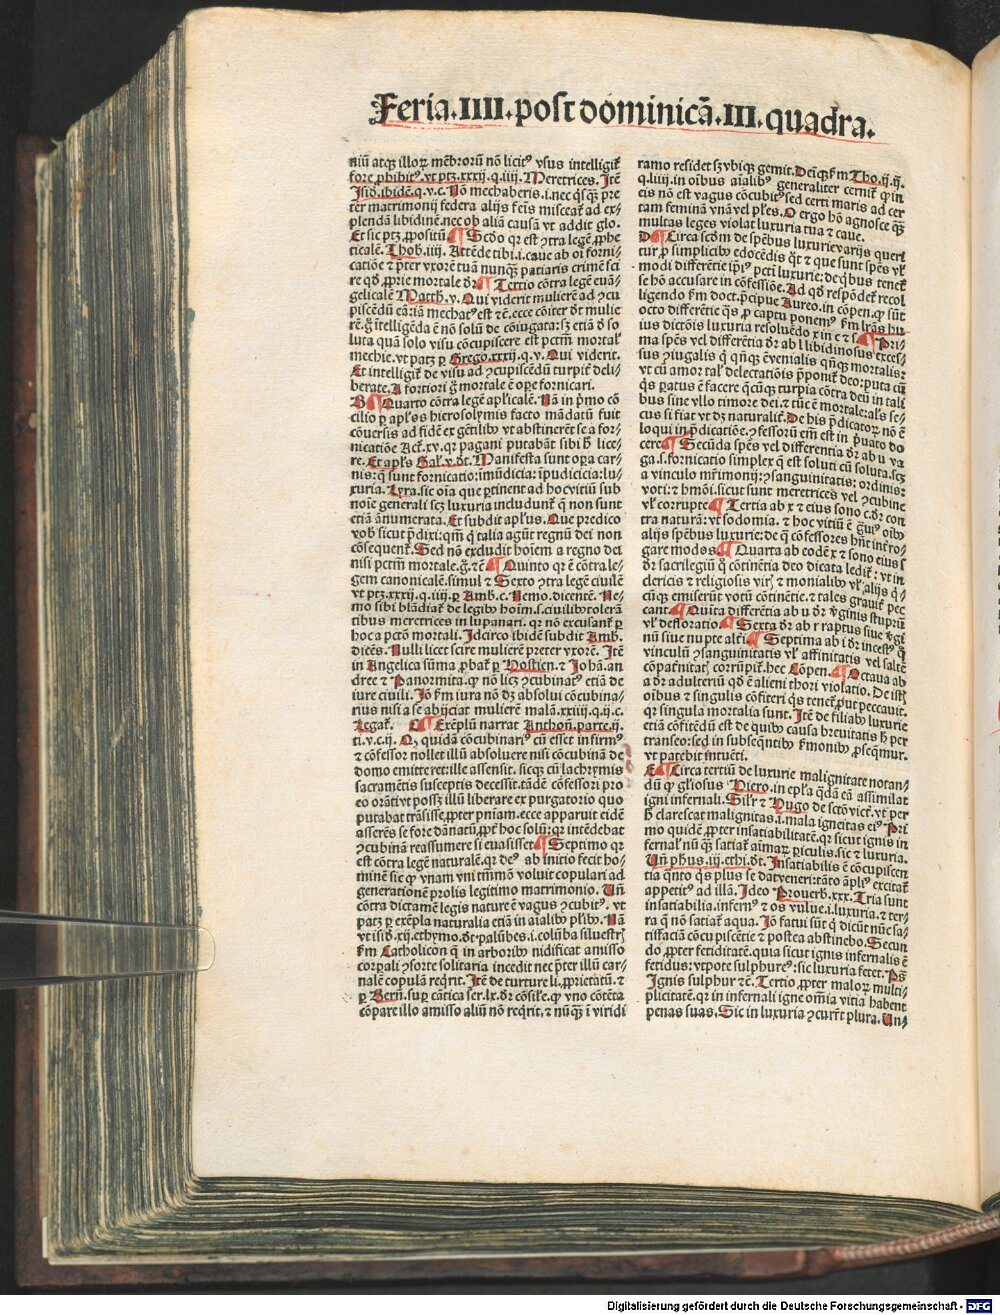 Feria.IIII.post dominicā.III.quadra.
niū atq; illoꝝ mēbrorū nō licitꝰ vsus intelligit᷑
fore ꝓhibitꝰ.vt ptꝫ.xxxij.q.iiij.Meretrices.Itē
Isið.ibidē.q.v.c.Nō mechaberis.i.nec qisq; pre
ter matrimonij federa alijs femīs misceat᷑ ad ex⸗
plendā libidinē.nec ob aliā causā vt addit glo.
Et sic ptꝫ ꝓpositū ¶ Scðo qꝛ est ↄtra legē ꝓphe
ticalē.Thob.iiij.Attēde tibi.i.caue ab oī forni⸗
catiōe & p̄ter vxorē tuā nunq̄ꝫ patiaris crimē sci
re qð ꝓprie mortale dꝛ ¶ Tertio cōtra legē euā⸗
gelicalē Matth.v.Qui viderit mulierē ad ↄcu
piscēdū eā:iā mechatꝰ est ⁊c̄.ecce cōiter dꝛt mulie
rē.g̊ itelligēda ē nō solū de cōiugata:sꝫ etiā ð so
luta quā solo visu cōcupiscere est pctm̄ mortal᷑
mechie.vt patꝫ ꝑ Grego.xxxij.q.v.Qui viderit.
Et intelligit᷑ de visu ad ↄcupiscēdū turpit᷑ deli⸗
berate.A fortiori g̊ mortale ē oꝑe fornicari.
B ¶ Quarto cōtra legē apl̓icalē.Nā in pͥmo cō
cilio ꝑ apl̓os hierosolymis facto mādatū fuit
cōuersis ad fidē ex gētilib᷒ vt abstinerēt se a for⸗
nicatiōe Act᷑.xv.qꝛ pagani putabāt sibi h̓ lice⸗
re.Et apl̓s Gal᷑.v.dt̓.Manifesta sunt oꝑa car⸗
nis:q̄ sunt fornicatio:imūdicia:ipudicicia:lu⸗
xuria.Lyra.sic oīa que ꝑtinent ad hoc vitiū sub
noīe generali scꝫ luxuria includunt᷑ q̄ non sunt
etiā ānumerata.Et subdit apl̓us.Que predico
vob̓ sicut pͥdixi:qm̄ q̓ talia agūt regnū dei non
cōsequent᷑.Sed nō excludit hoīem a regno dei
nisi pctm̄ mortale.g̊.⁊c̄ ¶ Quinto qꝛ ē cōtra le⸗
gem canonicalē.simul ⁊ Sexto ↄtra legē ciuilē
vt ptꝫ.xxxij.q.iiij.ꝑ Amb.c.Nemo.dicentē.Ne⸗
mo sibi blādiat᷑ de legib᷒ hoīm.s.ciuilib᷒ tolerā
tibus meretrices in lupanari.qꝛ nō excusant᷑ ꝑ
hoc a pctō mortali.Idcirco ibidē subdit Amb.
dicēs.Nulli licet scire mulierē preter vxorē.Itē
in Angelica sūma ꝓbat᷑ ꝑ Hostien.⁊ Johā.an
dree ⁊ Panormita.ꝙ nō licꝫ ↄcubinatꝰ etiā de
iure ciuili.Jō ẜm iura nō dꝫ absolui cōcubina⸗
rius nisi a se abijciat mulierē malā.xxiiij.q.ij.c.
Legat᷑. C ¶ Exēplū narrat Anthoñ.parte.ij.
ti.v.c.ij.Qꝫ quidā cōcubinariꝰ cū esset infirmꝰ
⁊ cōfessor nollet illū absoluere nisi cōcubinā de
domo emitteret:ille assensit.sicq; cū lachrymis
sacramētis susceptis decessit.tādē cōfessori pro
eo orāti vt possꝫ illū liberare ex purgatorio quo
putabat trāsisse ꝓpter pn̄iam.ecce apparuit eidē
asserēs se fore dānatū ꝓpt᷑ hoc solū:qꝛ intēdebat
ↄcubinā reassumere si euasisset ¶ Septimo qꝛ
est cōtra legē naturalē.qꝛ deꝰ ab initio fecit ho⸗
minē sic ꝙ vnam vni tm̄mō voluit copulari ad
generationē prolis legitimo matrimonio.Vn̄
cōtra dictamē legis nature ē vagus ↄcubitꝰ.vt
patꝫ ꝑ exēpla naturalia etiā in aīalib᷒ pl̓ib᷒.Nā
vt isið.xij.ethymo.dt̓ palūbes.i.colūba siluestris
ẜm Catholicon q̄ in arborib᷒ nidificat amisso
corꝑali ↄsorte solitaria incedit nec p̄ter illū car⸗
nalē copulā reqͥrit.Itē de turture li.ꝓprietatū.⁊
ꝑ Berñ.suꝑ cātica ser.lx.dꝛ cōsil̓e.ꝙ vno cōtēta
cōpare illo amisso aliū nō reqͥrit.⁊ nūq̄ꝫ ī viridi
ramo residet sꝫ vbiq; gemit.Deīq; ẜm Tho.ij.ij.
q.liiij.in oībus aīalib᷒ generaliter cernit᷑ ꝙ in
eis nō est vagus cōcubitꝰ sed certi maris ad cer
tam feminā vnā vel pl̓es.O ergo hō agnosce qꝫ
multas leges violat luxuria tua ⁊ caue.
D ¶ Circa scðm de spēbus luxurie varijs queri
tur ꝓ simplicib᷒ edocēdis q̊t ⁊ que sunt spēs vl᷑
modi differētie ip̄iꝰ pcti luxurie:de qͥbus tenet᷑
se hō accusare in cōfessiōe.Ad qð respōdet᷑ recol
ligendo ẜm doct.p̄cipue Aureo.in cōpen.ꝙ sūt
octo differētie qs ꝓ captu ponemꝰ ẜm lr̄as hu
ius dictōis luxuria resoluēdo x in c ⁊ s ¶ Pri⸗
ma spēs vel differētia dꝛ ab l libidinosus exces⸗
sus ↄiugalis q̓ qn̄q; ē venialis qn̄q; mortalis:
vt cū amor tal᷑ delectatiōis p̄ponit᷑ deo:puta cū
qs paratus ē facere q̄cūq; turpia cōtra deū in tali
bus sine vllo timore dei.⁊ tūc ē mortale:al̓s se⸗
cus si fiat vt dꝫ naturalit᷑.De his p̄dicatoꝝ nō ē
loqui in p̄dicatiōe.ↄfessorū em̄ est in p̓uato do
cere ¶ Secūda spēs vel differētia dꝛ ab u va
ga.s.fornicatio simplex q̄ est soluti cū soluta.scꝫ
a vinculo mr̄imonij:ↄsanguinitatis:ordinis:
voti:⁊ hmōi.sicut sunt meretrices vel ↄcubine
vl᷑ corrupte ¶ Tertia ab x ⁊ eius sono c.dꝛ con
tra naturā:vt sodomia.⁊ hoc vitiū ē g̓uiꝰ oīb᷒
alijs spēbus luxurie:de q̄ cōfessores hn̄t intro⸗
gare modos ¶ Quarta ab eodē x ⁊ sono eius s
dꝛ sacrilegiū q̓ cōtinētia deo dicata ledit᷑:vt in
clericis ⁊ religiosis viris ⁊ monialib᷒ vl᷑ alijs q̄⸗
cūq; emiserūt votū cōtinētie.⁊ tales grauit᷑ pec
cant ¶ Quīta differētia ab u dꝛ v̓ginis stuprū
vl᷑ defloratio ¶ Sexta dꝛ ab r raptus siue v̓gi
nū siue nupte alt᷑i ¶ Septima ab i dꝛ incestꝰ q̓
vinculū ↄsanguinitatis vl᷑ affinitatis vel salte
cōpat᷑nitat᷑ corrūpit᷑.hec Cōpen ¶ Octaua ab
a dꝛ adulteriū qð ē alieni thori violatio.De istis
oībus ⁊ singulis cōfiteri qs tenet᷑ ꝓut peccauit.
qꝛ singula mortalia sunt.Itē de filiab᷒ luxurie
etiā cōfitēdū est de quib᷒ causa breuitatis h̓ per
transeo:sed in subseqn̄tib᷒ ẜmonib᷒ ꝓseqmur.
vt patebit intuēti.
E ¶ Circa tertiū de luxurie malignitate notan⸗
dū ꝙ gl̓iosus Hiero.in epl̓a q̄dā eā assimilat
igni infernali.Sil᷑r ⁊ Hugo de sctō vict᷑.vt per
h̓ clarescat malignitas.i.mala igneitas eiꝰ.Pri
mo quidē ꝓpter insatiabilitatē.qꝛ sicut ignis in
fernal᷑ nūq̄ꝫ satiat᷑ aīmaꝝ ꝑiculis.sic ⁊ luxuria.
Vn̄ phus.iij.ethi.dt̓.Insatiabilis ē cōcupiscen
tia qnto qs plus se dat veneri:tāto āpliꝰ excitat᷑
appetitꝰ ad illā.Ideo Prouerb.xxx.Tria sunt
insatiabilia.infernꝰ ⁊ os vulue.i.luxuria.⁊ ter⸗
ra q̄ nō satiat᷑ aqua.Jō fatui sūt q̓ dicūt nūc sa⸗
tisfaciā cōcupiscētie ⁊ postea abstinebo.Secun
do ꝓpter fetiditatē.quia sicut ignis infernalis ē
fetidus:vtpote sulphureꝰ:sic luxuria fetet.Ps̄
Ignis sulphur ⁊c̄.Tertio ꝓpter maloꝝ multi⸗
plicitatē.qꝛ in infernali igne om̄ia vitia habent
penas suas.Sic in luxuria ↄcurrt̄ plura.Un⸗
Digitalisierung gefördert durch die Deutsche Forschungsgemeinschaft - DFG